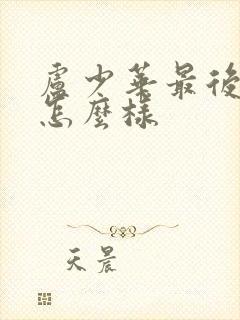 盧少葉最後
怎麼樣
天晨